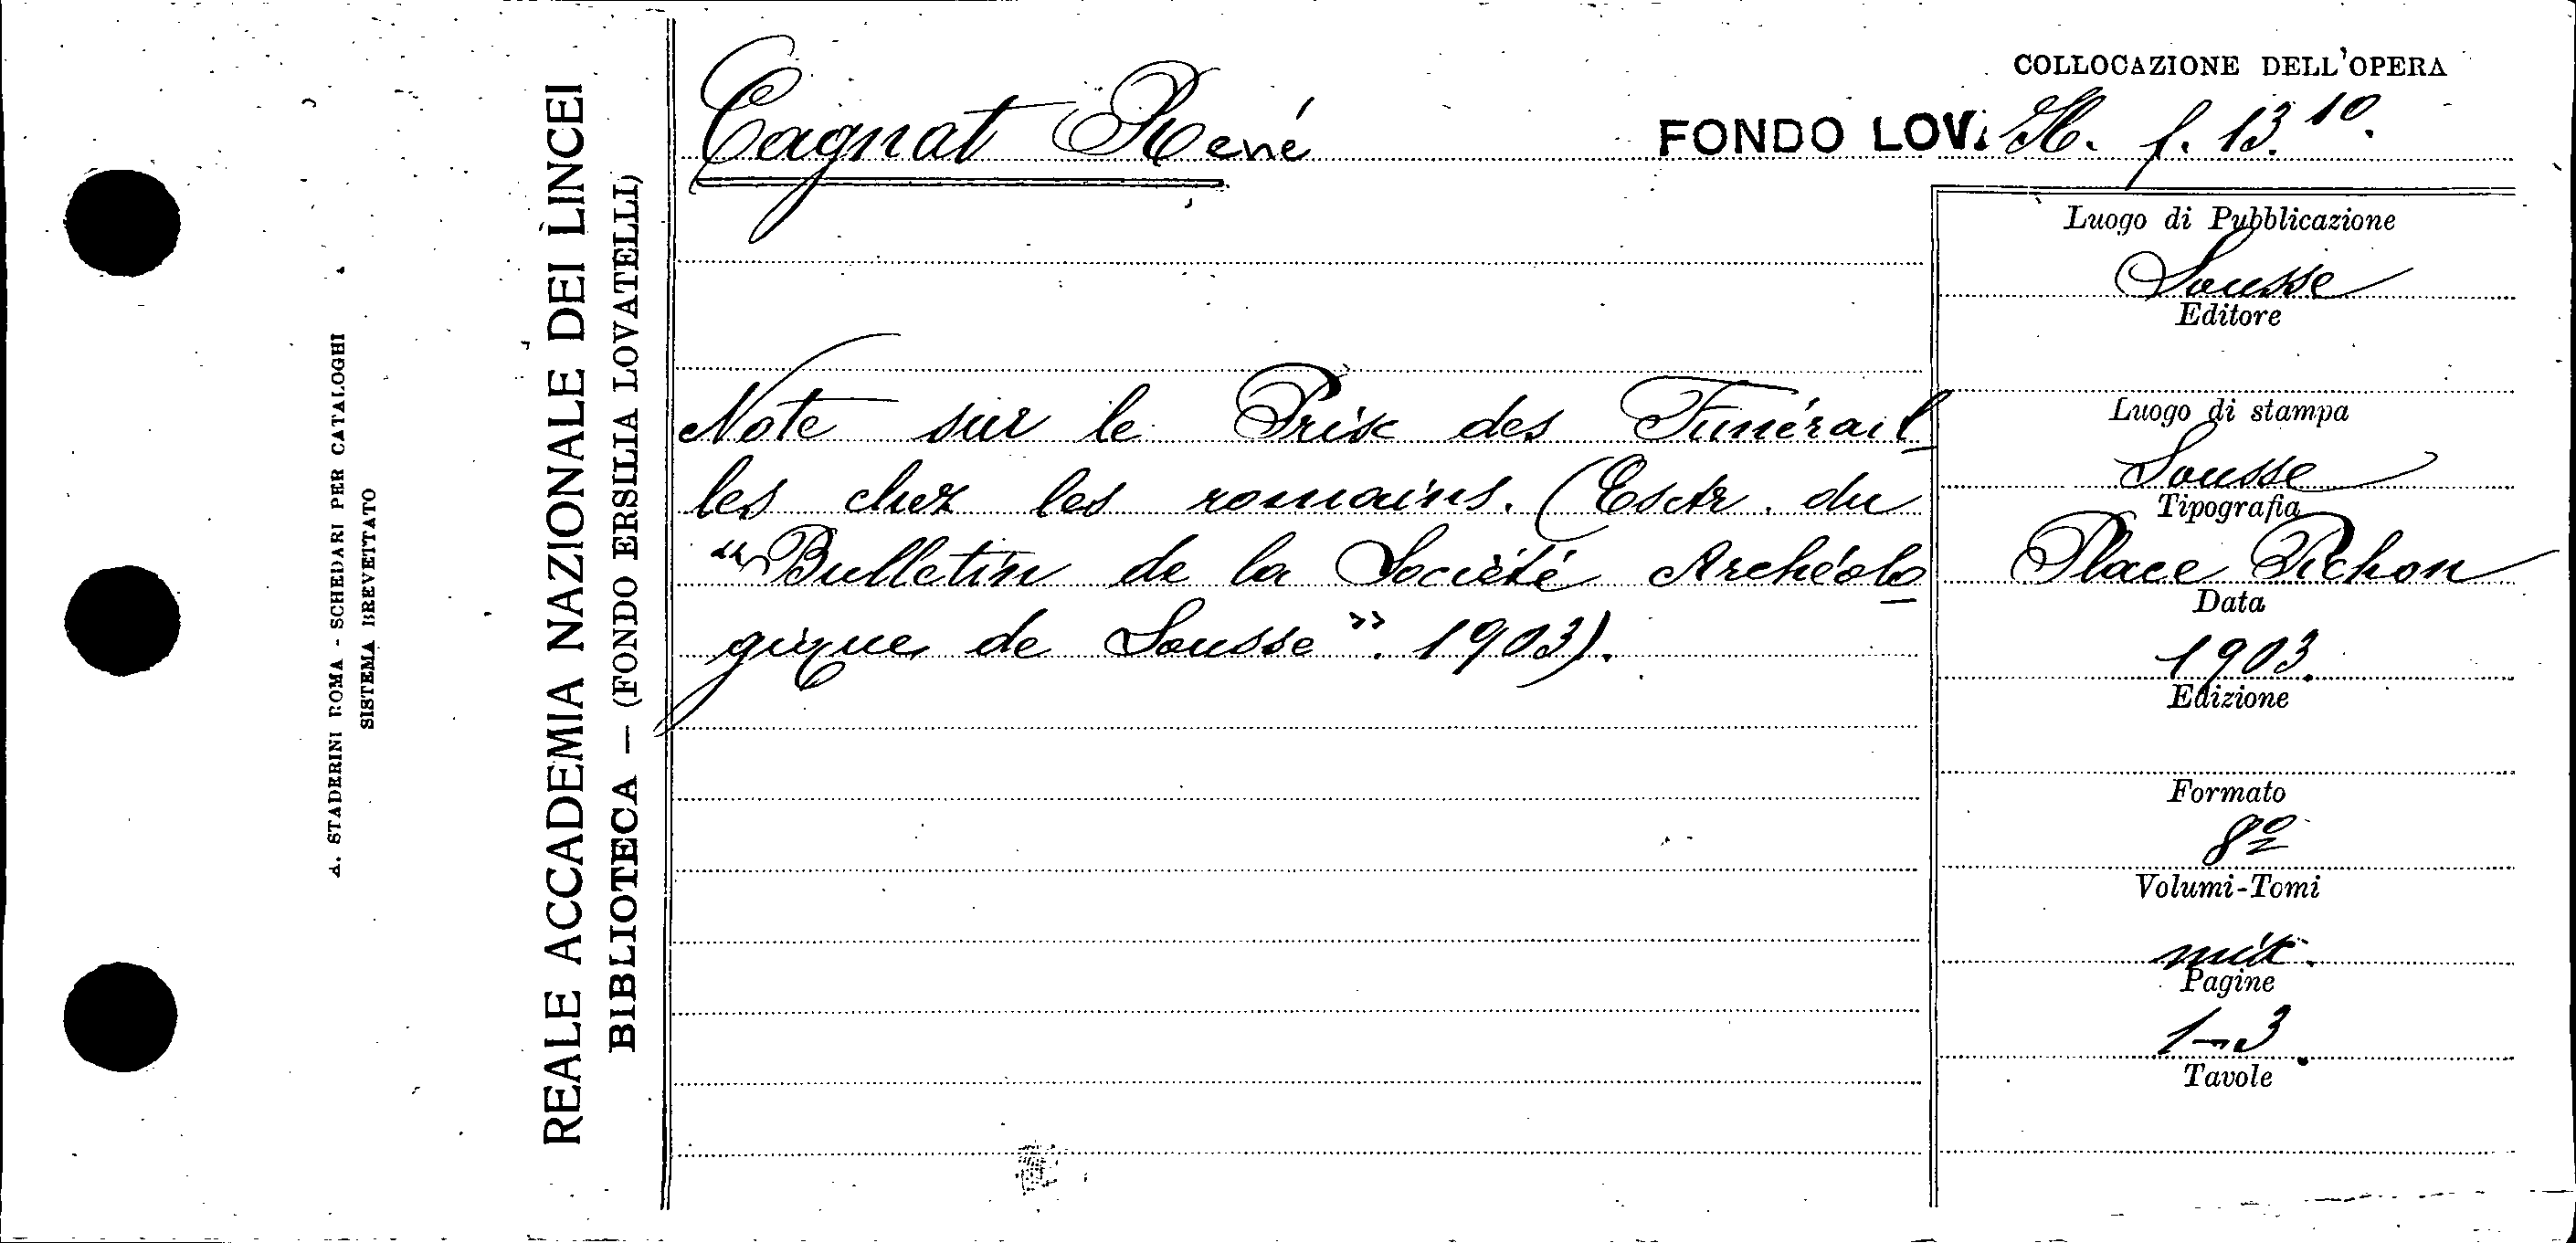 COLLOCAZIONE DELL'OPERA
Cagnat René
FONDO LOV. H. f. 13.10.
Note sur le Prix des Funérail
les chez les romains. (Extr. du
"Bulletin de la Société Archéolo
gique de Sousse". 1903).
Luogo di Pubblicazione
Sousse
Editore
Luogo di stampa
Sousse
Tipografia
Place Pichon
Data
1903.
Edizione
Formato
8º
Volumi-Tomi
Pagine
1-3.
Tavole
REALE ACCADEMIA NAZIONALE DEI LINCEI
BIBLIOTECA — (FONDO ERSILIA LOVATELLI)
A. STADERINI ROMA - SCHEDARI PER CATALOGHI
SISTEMA BREVETTATO